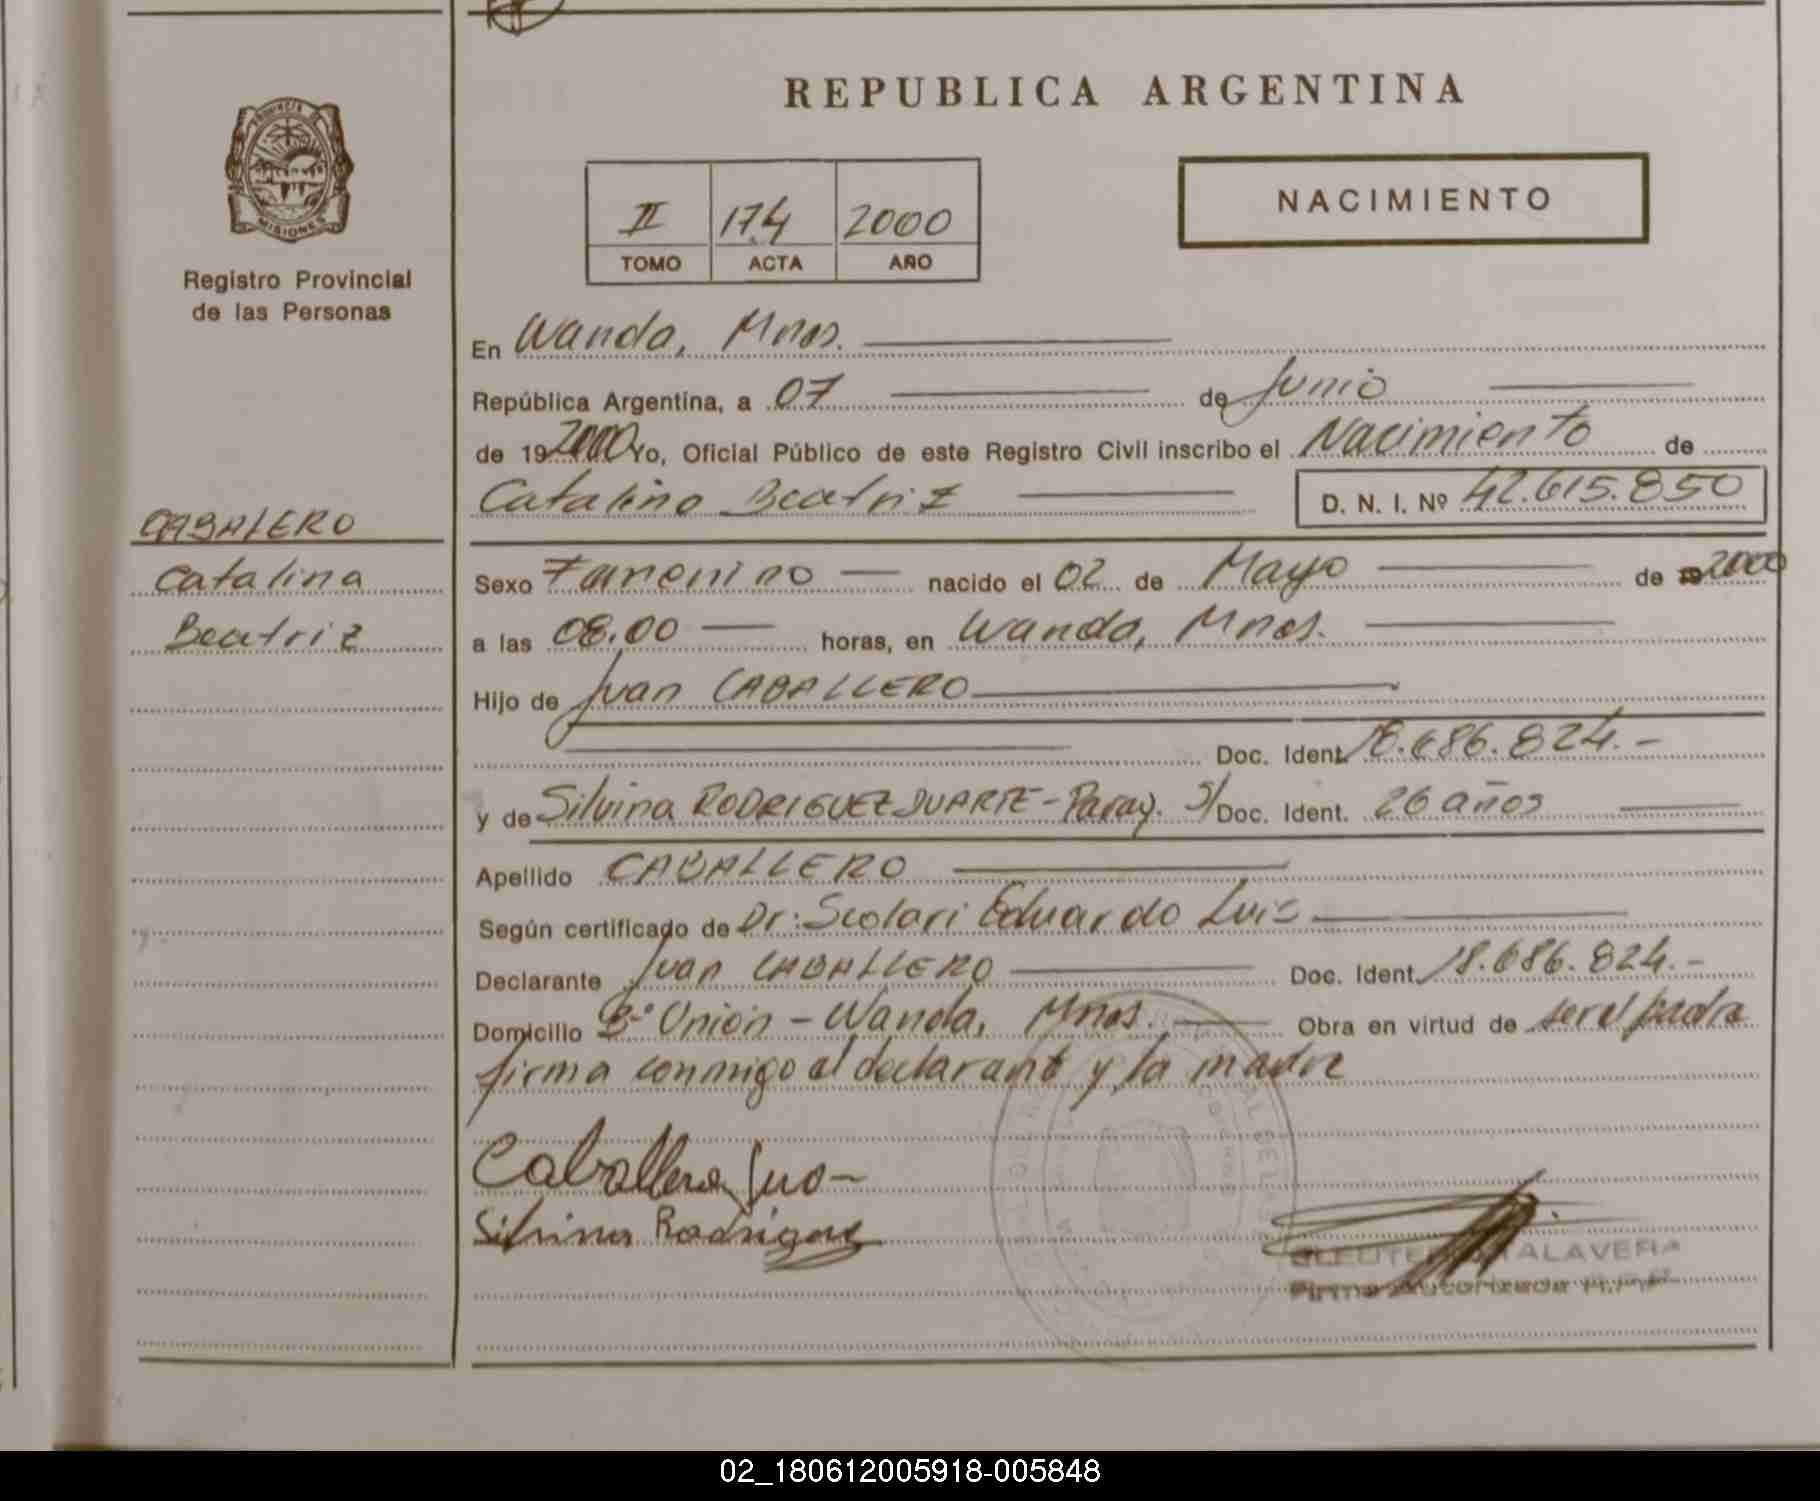 REPUBLICA ARGENTINA
PROVINCIA DE
MISIONES
Registro Provincial
de las Personas
II 174 2000
TOMO ACTA AÑO
NACIMIENTO
En Wanda, Mnes.
República Argentina, a 07 de Junio
de 19 2000 Yo, Oficial Público de este Registro Civil inscribo el Nacimiento de
Catalina Beatriz D. N. I. Nº 42.615.850
CABALLERO
Catalina
Beatriz
Sexo Femenino nacido el 02 de Mayo de 2000
a las 08.00 horas, en Wanda, Mnes.
Hijo de Juan CABALLERO
Doc. Ident. 18.686.824.-
y de Silvina RODRIGUEZ DUARTE - Paray. S/ Doc. Ident. 26 años
Apellido CABALLERO
Según certificado de Dr: Scolari Eduardo Luis
Declarante Juan CABALLERO Doc. Ident. 18.686.824.-
Domicilio Bº Unión - Wanda, Mnes. Obra en virtud de ser el padre
firma conmigo el declarante y la madre
Caballero Juan
Silvina Rodriguez
TALAVERA
Firma Autorizada R.P.P.
02_180612005918-005848